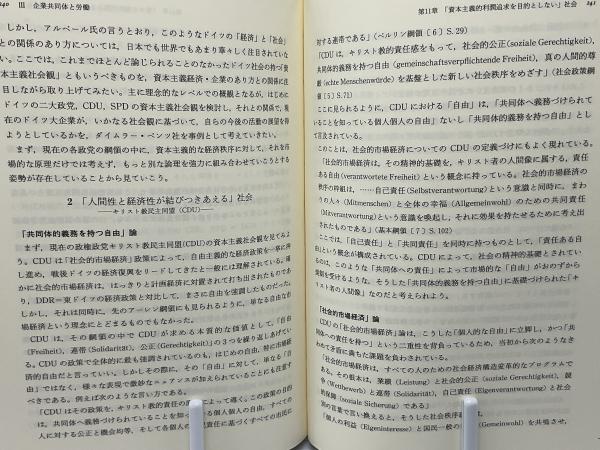 240　Ⅲ　企業共同体と労働
しかし，アルベール氏の言うとおり，このようなドイツの「経済」と「社会」
との関係のあり方については，日本でも世界でもあまり華々しく注目されていな
い。ここでは，これまでほとんど論じられることのなかったドイツ社会の持つ「資
本主義社会観」ともいうべきものを，資本主義経済・企業のあり方との関係に注
目しながら取り上げてみたい。主に理念的なレベルでの概観となるが，はじめに
ドイツの二大政党，CDU，SPDの資本主義社会観を検討し，それとの関係で，現
在のドイツ大企業が，いかなる社会観に基づいて，自らの今後の活動の展望を得
ようとしているかを，ダイムラー・ベンツ社を事例として考えていきたい。
まず，現在の各政党の綱領の中に，資本主義的な経済秩序に対して，それを市
場的な原理だけでは考えず，もっと別な論理を強力に組み合わせていこうとする
姿勢が存在していることから見ていこう。
2　「人間性と経済性が結びつきあえる」社会
――キリスト教民主同盟（CDU）――
「共同体的義務を持つ自由」論
まず，現在の政権政党キリスト教民主同盟(CDU)の資本主義社会観を見てみよ
う。CDUは「社会的市場経済」政策によって，自由主義的な経済政策を一筋に押
し進め，戦後ドイツの経済復興をリードしてきたと一般には理解されている。確
かに社会的市場経済は，はっきりと計画経済に対置されて打ち出されたものであ
り，DDR＝東ドイツの経済政策と対比して，まさに自由を強調したものだった。
しかし，それは同時に，先のアーレン綱領にも見られるように，単なる自由な市
場経済という理念にとどまるものでもなかった。
CDUは，その綱領の中でCDUが求める本質的な価値として，「自由
(Freiheit)，連帯(Solidarität)，公正(Gerechtigkeit)」の3つを繰り返しあげてい
る。CDUの政策で全体的に最も強調されているのも，はじめの自由，特に市場経
済的自由だと言っていい。しかしその際に，その「自由」に対して，単なる「自
由」ではなく，様々な表現で微妙なニュアンスが加えられていることにも注意す
べきである。例えば次のような言い方である。
「CDUはその政策を，キリスト教的責任の
によって導く。この政策の目的
は，共同体へ義務づけられていることを知っ
る個人個人の自由，すべての
人に対する公正と機会均等，そして各個人の
己責任に基づくすべての市民に
第11章　「資本主義的利潤追求を目的としない」社会　241
対する連帯である」（ベルリン綱領〔6〕S. 29）
「CDUは，キリスト教的責任感をもって，社会的公正(soziale Gerechtigkeit)，
共同体的義務を持つ自由（gemeinschaftsverpflichtende Freiheit)，真の人間的尊
厳(echte Menschenwürde)を基盤とした新しい社会秩序をめざす」（社会政策綱
領〔5〕S. 71）
ここに見られるように，CDUにおける「自由」は，「共同体へ義務づけられて
いることを知っている個人個人の自由」ないし「共同体的義務を持つ自由」とし
て言及されている。
このことは，社会的市場経済についてのCDUの定義づけにもよく現れている。
「社会的市場経済は，その精神的基礎を，キリスト者の人間像に属する，責任
ある自由(verantwortete Freiheit)という概念に持っている。社会的市場経済の
秩序の枠組は，……自己責任(Selbstverantwortung)という意識と同時に，まわ
りの人々(Mitmenschen)と全体の幸福(Allgemeinwohl)のための共同責任
(Mitverantwortung)という意識を喚起し，それに効果を持たせるために考え出
されたものである」（基本綱領〔7〕S. 102）
ここでは，「自己責任」と「共同責任」を同時に持つものとして，「責任ある自
由」という概念が構成されている。CDUによって，社会の精神的基礎とされてい
るのは，このような「共同体への責任」によって市場的な「自由」がおのずから
制限を受けるような，そうした「共同体的義務を持つ自由」に基礎づけられた「キ
リスト者の人間像」なのだと考えられよう。
「社会的市場経済」論
CDUの「社会的市場経済」論は，こうした「個人的な自由」に立脚し，かつ「共
同体への責任を持つ」という二重性を背負っているため，当初から次のようなき
わめて矛盾に満ちた課題を負わされている。
「社会的市場経済は，すべての人のための社会経済構造変革的なプログラムで
ある。その根本は，業績(Leistung)と社会的公正(soziale Gerechtigkeit)，競
争(Wettbewerb)と連帯(Solidarität)，自己責任(Eigenverantwortung)と社会
的保障(soziale Sicherung)である」
別の言葉で言い換えると，そうした社会秩序
「個人の利益(Eigeninteresse)と国民一般の
(Gemeinwohl)を共鳴させ，